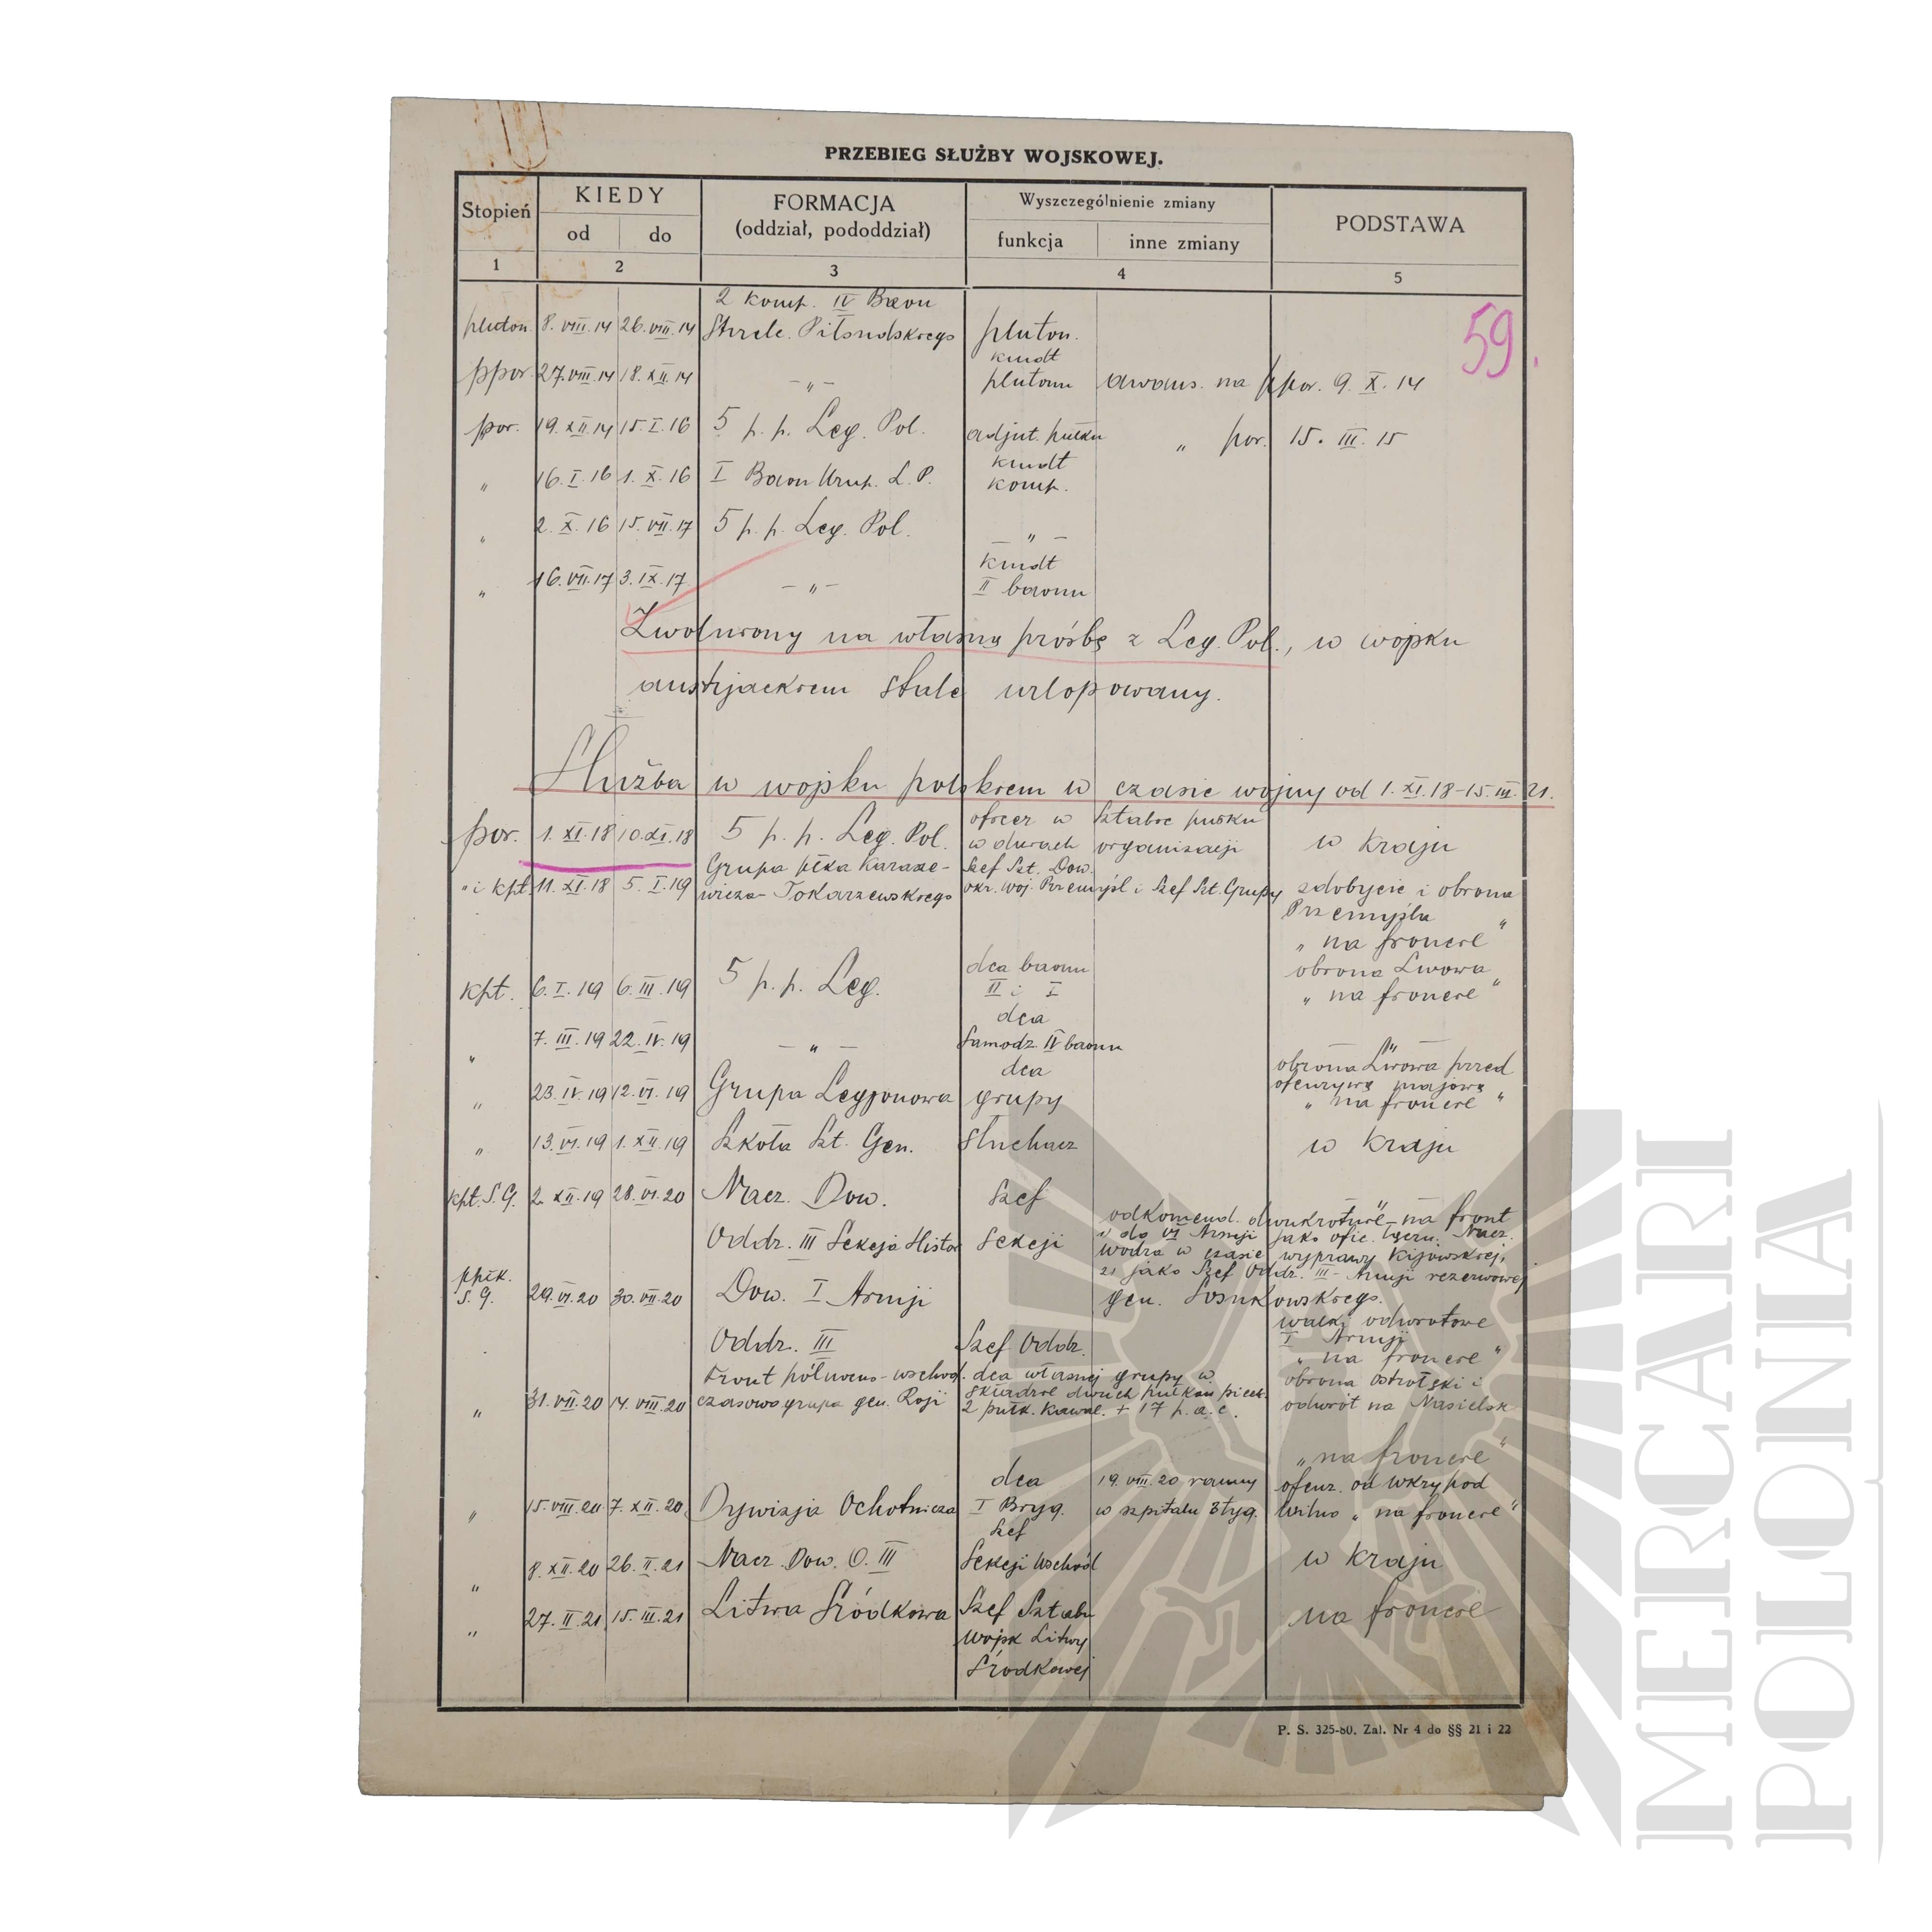 PRZEBIEG SŁUŻBY WOJSKOWEJ.
Stopień KIEDY FORMACJA Wyszczególnienie zmiany PODSTAWA
od do (oddział, pododdział) funkcja inne zmiany
1 2 3 4 5
59.
2 komp. IV Baon
pluton. 8.VIII.14 26.VIII.14 Strzelc. Piłsudskiego pluton.
kmdt
ppor. 27.VIII.14 18.XII.14 -„- plutonu awans. na ppor. 9.X.14
por. 19.XII.14 15.I.16 5 p.p. Leg. Pol. adjut. pułku „ por. 15.III.15
kmdt
„ 16.I.16 1.X.16 I Baon Uzup. L.P. komp.
„ 2.X.16 15.VII.17 5 p.p. Leg. Pol. -„-
kmdt
„ 16.VII.17 3.IX.17 -„- II baonu
Zwolniony na własną prośbę z Leg. Pol., w wojsku
austrjackiem stale urlopowany.
Służba w wojsku polskiem w czasie wojny od 1.XI.18-15.III.21.
oficer w sztabie pułku
por. 1.XI.18 10.XI.18 5 p.p. Leg. Pol. w dniach organizacji w kraju
Grupa płka Karasze- Szef Szt. Dow.
„ i kpt. 11.XI.18 5.I.19 wicza-Tokarzewskiego okr. woj. Przemyśl i Szef Szt. Grupy zdobycie i obrona
Przemyśla
„na froncie"
kpt. 6.I.19 6.III.19 5 p.p. Leg. dca baonu II i I obrona Lwowa
„na froncie"
dca
„ 7.III.19 22.IV.19 -„- samodz. IV baonu -„-
dca obrona Lwowa przed
„ 23.IV.19 12.VI.19 Grupa Legjonowa grupy ofenzywą majową
„na froncie"
„ 13.VI.19 1.XII.19 Szkoła Szt. Gen. słuchacz w kraju
kpt. S.G. 2.XII.19 28.VI.20 Nacz. Dow. Szef
Oddz. III Sekcja Histor. Sekcji odkomend. dwukrotnie na front
1) do VI Armji jako ofic. łączn. Nacz.
Wodza w czasie wyprawy Kijowskiej,
2) jako Szef Oddz. III Armji rezerwowej
gen. Sosnkowskiego.
ppłk.
S.G. 29.VI.20 30.VII.20 Dow. I Armji
Oddz. III Szef Oddz. walki odwrotowe
I Armji
„na froncie"
Front północno-wschod. dca własnej grupy w obrona Ostrołęki i
„ 31.VII.20 14.VIII.20 czasowo grupa gen. Roji składzie dwuch pułków piech. odwrót na Nasielsk
2 pułk. kawal. + 17 p.a.c.
„na froncie"
dca 19.VIII.20 ranny ofenz. od Wkry pod
„ 15.VIII.20 7.XII.20 Dywizja Ochotnicza I Bryg. w szpitalu 3 tyg. Wilno „na froncie"
Szef
„ 8.XII.20 26.II.21 Nacz. Dow. O. III Sekcji Wschód w kraju
„ 27.II.21 15.III.21 Litwa Śródkowa Szef Sztabu na froncie
Wojsk Litwy
Śródkowej
P. S. 325-60. Zał. Nr 4 do §§ 21 i 22
MERCARI
POLONIA